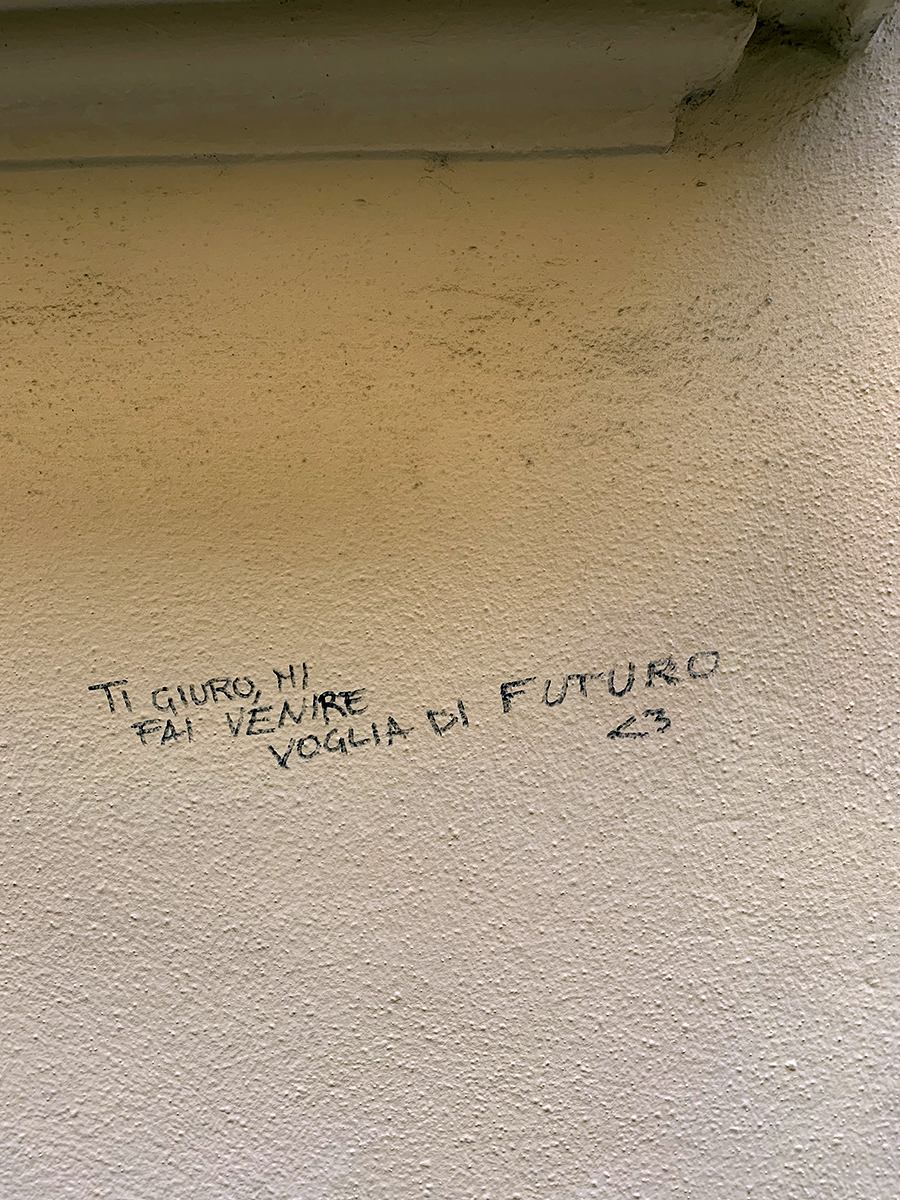 TI GIURO, MI
FAI VENIRE
VOGLIA DI FUTURO
<3